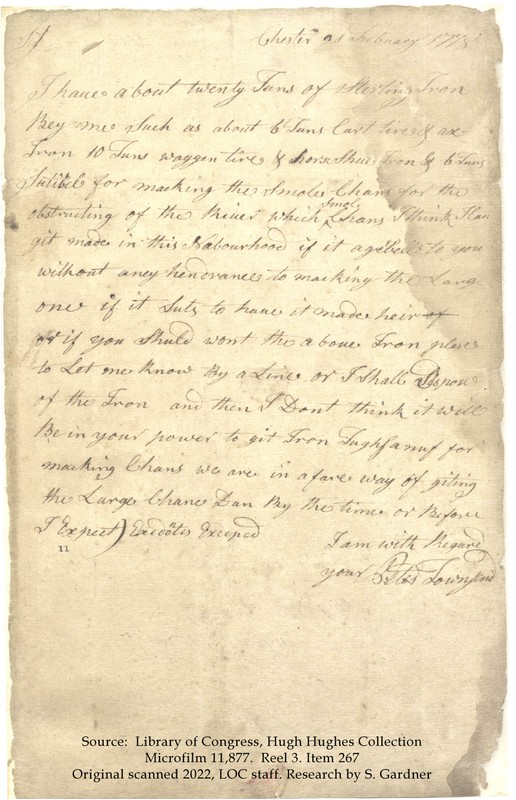 Sr
Chester 21 February 1778
I have about twenty Tuns of Sterling Iron
Bey me Such as about 6 Tuns Cart tire & ax
Iron 10 Tuns waggen tire & horse Shue Iron & 6 Tuns
Sutibel for macking the Smole Chans for the
obstructing of the River which Smole Chans I think I Can
git made in this Nabourhood if it agebell to you
without aney hendrance to macking the Large
one if it Suts to have it made heir of
or if you Shuld wont the above Iron plese
to Let me Know By a Line or I Shall Dispose
of the Iron and then I Dont think it will
Be in your power to git Iron Tughf anuf for
macking Chans we are in a fare way of giting
the Large Chane Dan By the time or Before
I Expect) Exceeped
I am with Regard
your Townsend
11
Source: Library of Congress, Hugh Hughes Collection
Microfilm 11,877. Reel 3. Item 267
Original scanned 2022, LOC staff. Research by S. Gardner